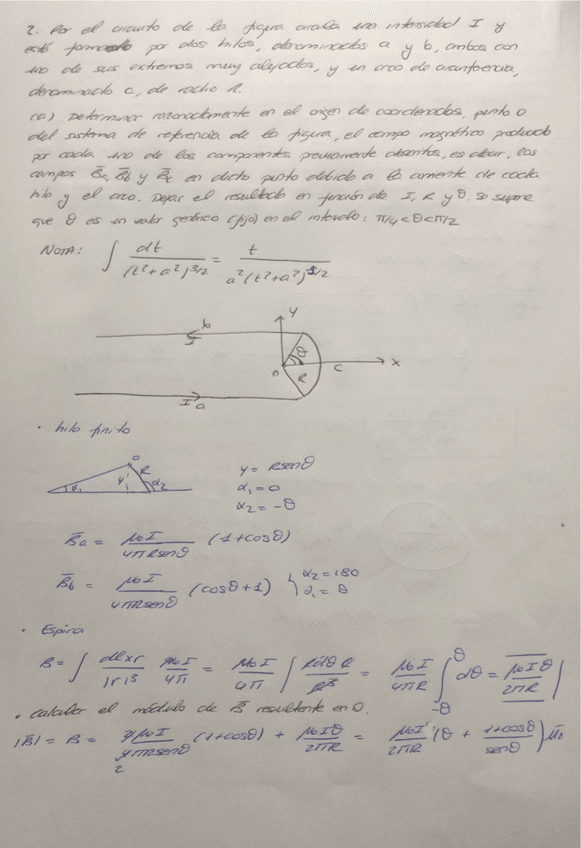 2. Por el circuito de la figura circula una intensidad I y
está formado por dos hilos, denominados a y b, ambos con
uno de sus extremos muy alejados, y un arco de circunferencia,
denominado c, de radio R.
(a) Determinar razonadamente en el origen de coordenadas, punto O
del sistema de referencia de la figura, el campo magnético producido
por cada uno de los componentes previamente descritos, es decir, los
campos B̄a, B̄b y B̄c en dicho punto debido a la corriente de cada
hilo y el arco. Dejar el resultado en función de I, R y θ. Se supone
que θ es un valor genérico (fijo) en el intervalo: π/4<θ<π/2
NOTA: ∫ dt/(t²+a²)^3/2 = t/a²(t²+a²)^1/2
y
b
I
θ
O
R
C
x
I a
• hilo finito
O
R
α1 y α2
y = R senθ
α1 = 0
α2 = -θ
B̄a = μoI/4πRsenθ (1+cosθ)
B̄b = μoI/4πRsenθ (cosθ+1) } α2=180
α1=θ
• Espira
B = ∫ dl×r/|r|³ μoI/4π = μoI/4π ∫ Rdθ R/R³ = μoI/4πR ∫_-θ^θ dθ = μoIθ/2πR
• calcular el módulo de B̄ resultante en O.
|B̄| = B = 2μoI/4πRsenθ (1+cosθ) + μoIθ/2πR = μoI/2πR (θ + 1+cosθ/senθ)
2